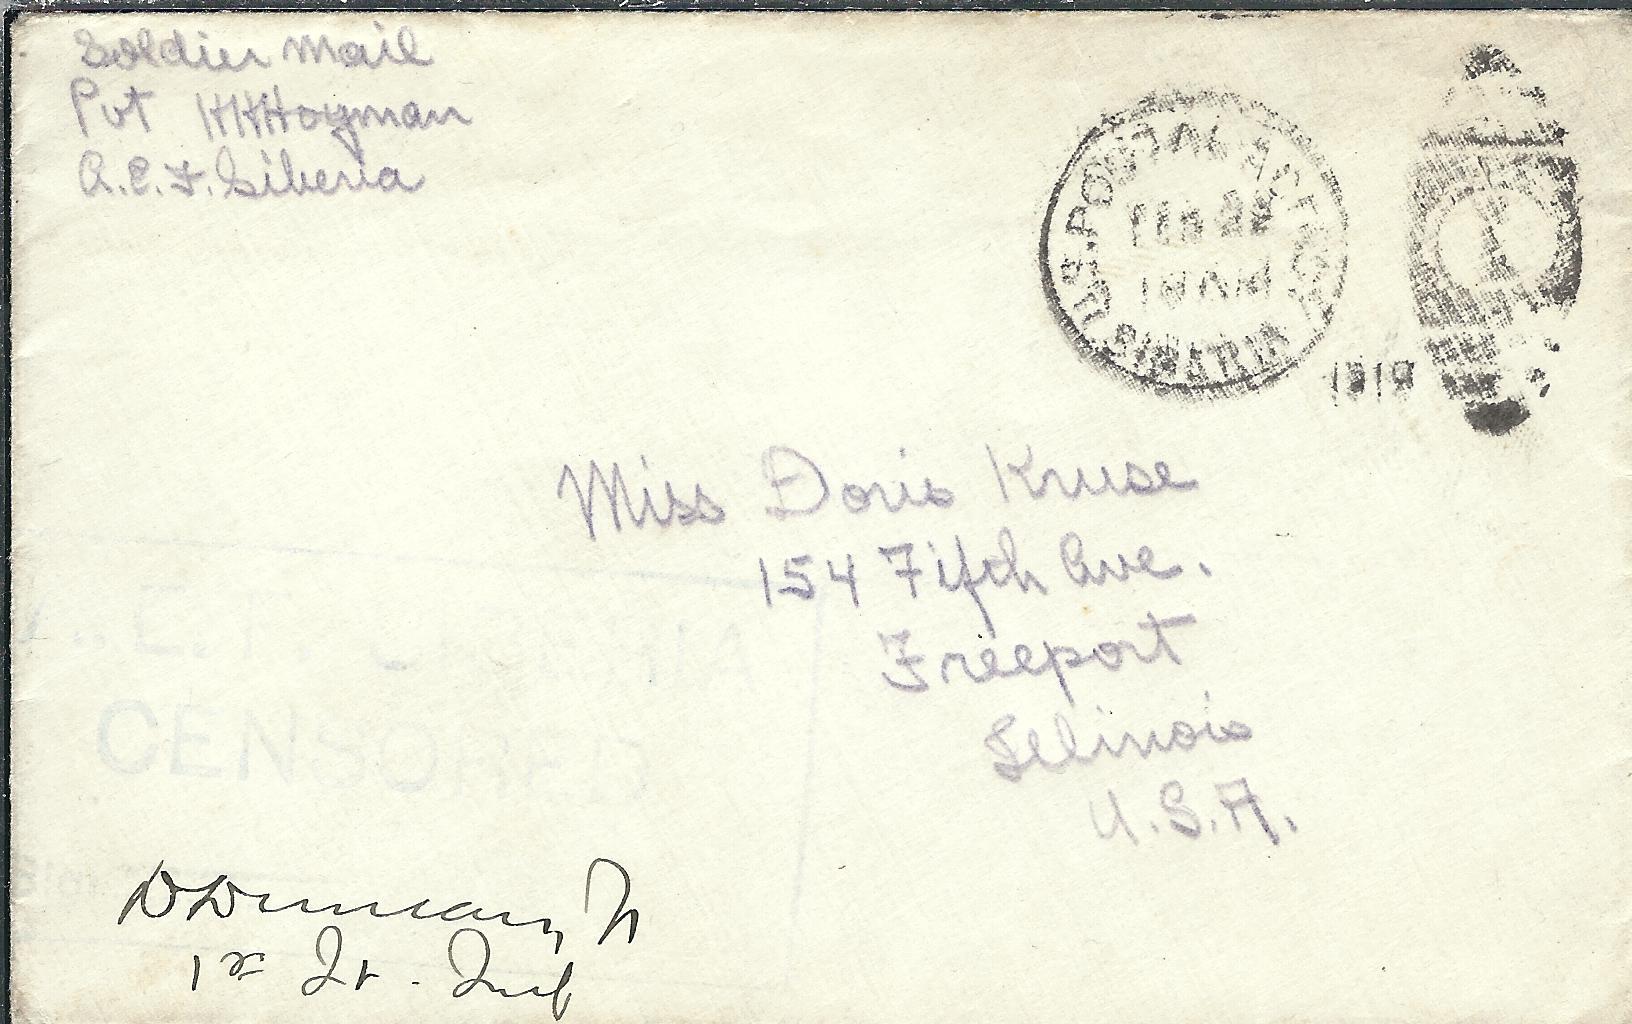 Soldier Mail
Pvt HHHoyman
A.E.F. Siberia
U.S. POSTAL AGENCY
FEB 22
10 AM
SIBERIA
1919
1
Miss Doris Kruse
154 Fifth Ave.
Freeport
Illinois
U.S.A.
A.E.F. SIBERIA
CENSORED
DDuncan, Jr
1st Lt. Inf